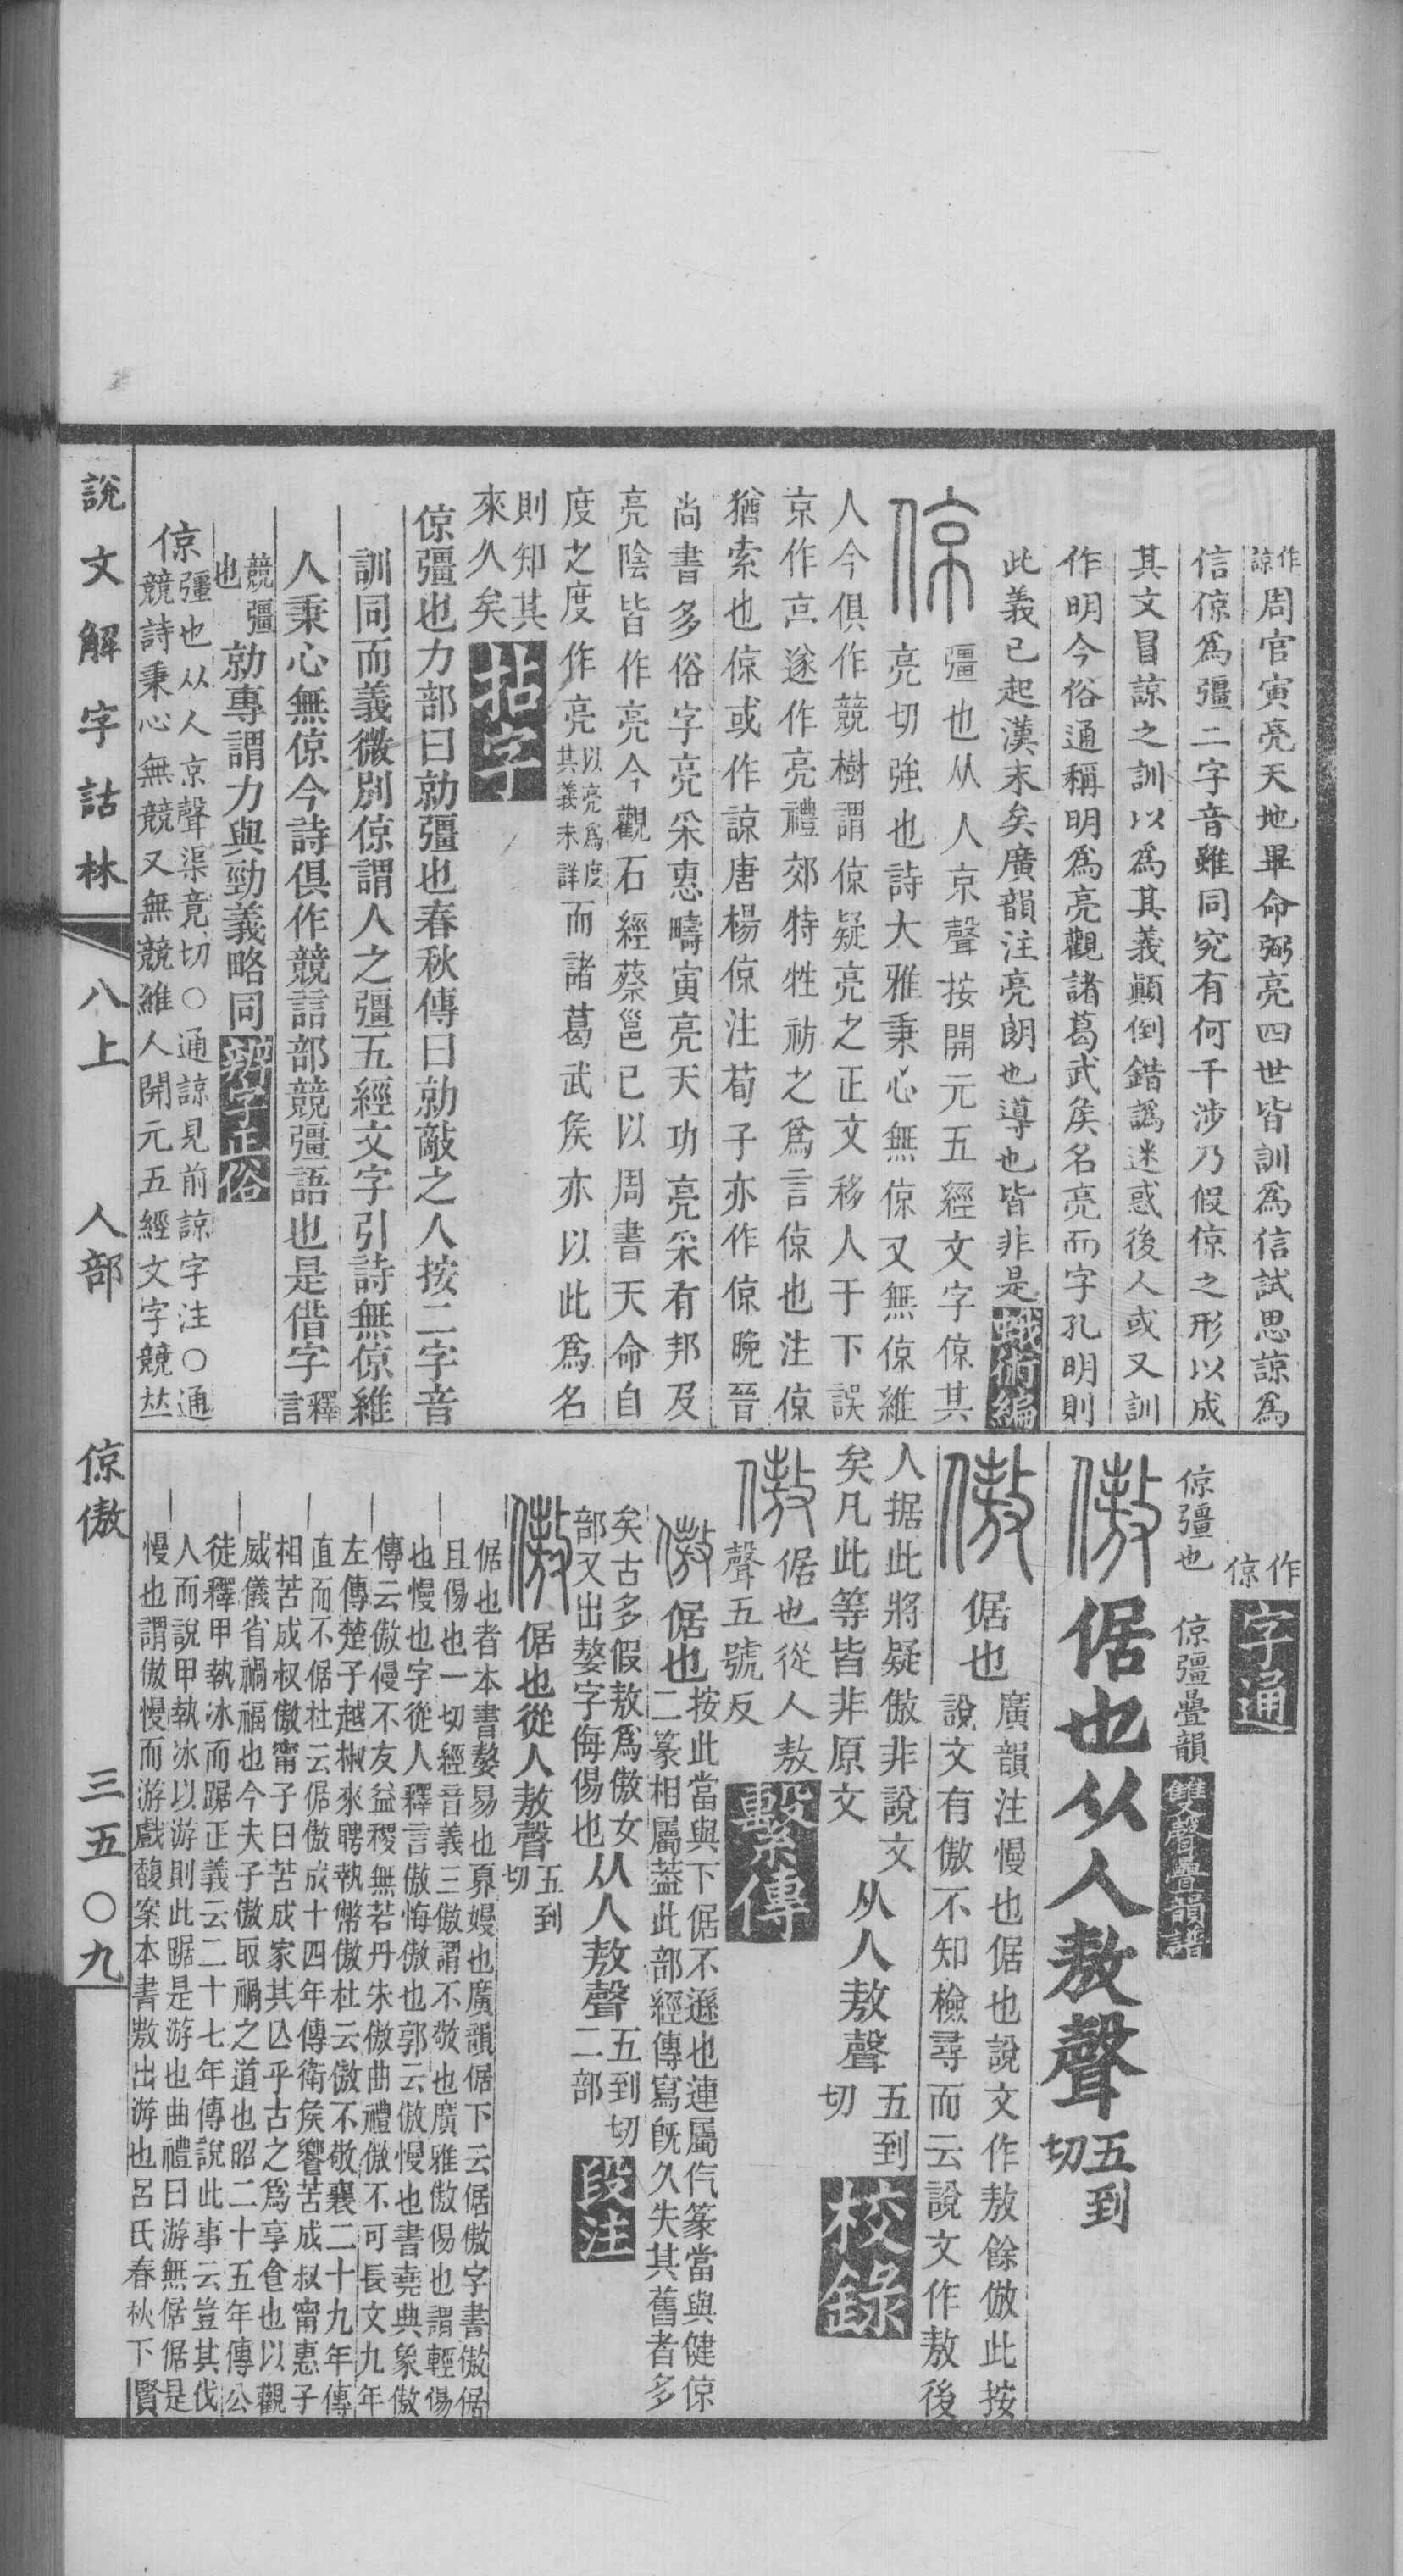 作諒周官寅亮天地畢命弼亮四世皆訓爲信試思諒爲
信倞爲彊二字音雖同究有何干涉乃假倞之形以成
其文冒諒之訓以爲其義顚倒錯譌迷惑後人或又訓
作明今俗通稱明爲亮觀諸葛武矦名亮而字孔明則
此義已起漢末矣廣韻注亮朗也導也皆非是蛾術編
倞
彊也从人京聲按開元五經文字倞其
亮切強也詩大雅秉心無倞又無倞維
人今俱作競樹謂倞疑亮之正文移人于下誤
京作亯遂作亮禮郊特牲祊之爲言倞也注倞
猶索也倞或作諒唐楊倞注荀子亦作倞晚晉
尚書多俗字亮采惠疇寅亮天功亮采有邦及
亮陰皆作亮今觀石經蔡邕已以周書天命自
度之度作亮以亮爲度其義未詳而諸葛武矦亦以此爲名
則知其來久矣拈字
倞彊也力部曰勍彊也春秋傳曰勍敵之人按二字音
訓同而義微別倞謂人之彊五經文字引詩無倞維
人秉心無倞今詩俱作競誩部競彊語也是借字釋言
競彊也勍專謂力與勁義略同辨字正俗
倞彊也从人京聲渠竟切○通諒見前諒字注○通
競詩秉心無競又無競維人開元五經文字競𠀤
作倞字通
倞彊也 倞彊疊韻雙聲疊韻譜
傲倨也从人敖聲五到切
傲倨也廣韻注慢也倨也說文作敖餘倣此按
說文有傲不知檢尋而云說文作敖後
人据此將疑傲非說文
矣凡此等皆非原文从人敖聲五到切校錄
傲倨也從人敖
聲五號反繫傳
傲倨也按此當與下倨不遜也連屬仡篆當與健倞
二篆相屬葢此部經傳寫旣久失其舊者多
矣古多假敖爲傲女
部又出嫯字侮傷也从人敖聲五到切二部段注
傲倨也從人敖聲五到切
倨也者本書嫯易也奡嫚也廣韻倨下云倨傲字書傲倨
且傷也一切經音義三傲謂不敬也廣雅傲傷也謂輕傷
也慢也字從人釋言傲悔傲也郭云傲慢也書堯典象傲
傳云傲慢不友益稷無若丹朱傲曲禮傲不可長文九年
左傳楚子越椒來聘執幣傲杜云傲不敬襄二十九年傳
直而不倨杜云倨傲成十四年傳衛矦饗苦成叔甯惠子
相苦成叔傲甯子曰苦成家其亾乎古之爲享食也以觀
威儀省禍福也今夫子傲取禍之道也昭二十五年傳公
徒釋甲執冰而踞正義云二十七年傳說此事云豈其伐
人而說甲執冰以游則此踞是游也曲禮曰游無倨倨是
慢也謂傲慢而游戲馥案本書敖出游也呂氏春秋下賢
說文解字詁林 八上 人部 倞傲 三五〇九